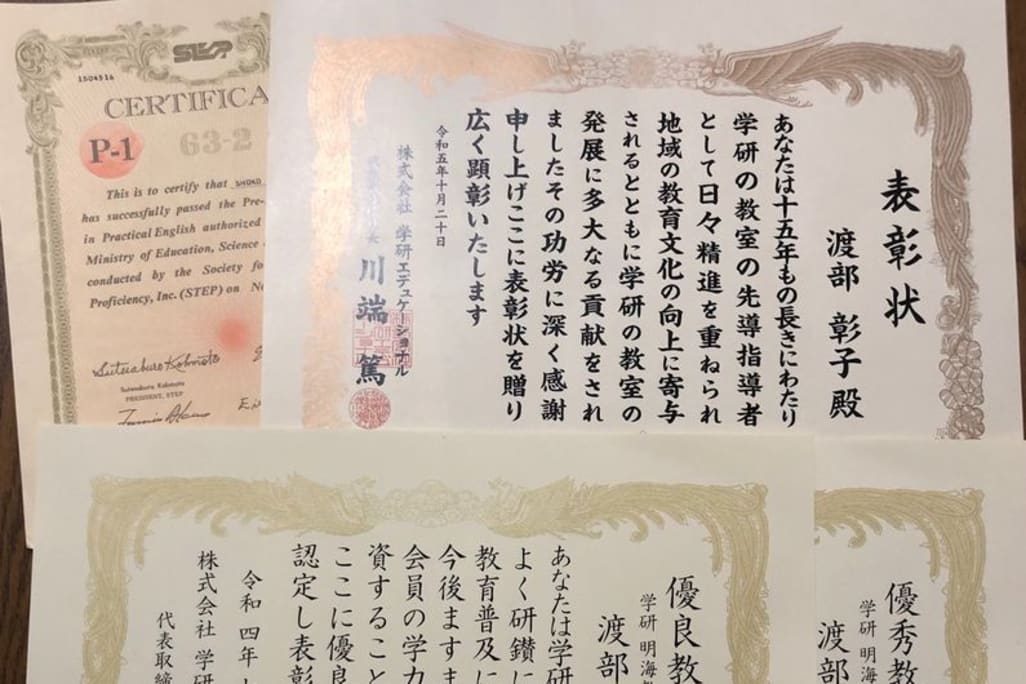 STEP
1504516
CERTIFICA
P-1
63-2
This is to certify that SHOKO
has successfully passed the Pre-
in Practical English authorized
Ministry of Education, Science
conducted by the Society fo
Proficiency, Inc. (STEP) on No
Suteisaburo Kobmoto
PRESIDENT, STEP
表彰状
渡部 彰子 殿
あなたは十五年もの長きにわたり
学研の教室の先導指導者
として日々精進を重ねられ
地域の教育文化の向上に寄与
されるとともに学研の教室の
発展に多大なる貢献をされ
ましたその功労に深く感謝
申し上げここに表彰状を贈り
広く顕彰いたします
令和五年十月二十日
株式会社 学研エデュケーショナル
川端 篤
優良教
学研 明海
渡部
あなたは学研
よく研鑽に
教育普及に
今後ますま
会員の学力
資すること
ここに優良
認定し表彰
令和四年
株式会社 学研
代表取締
優秀教
学研 明海
渡部